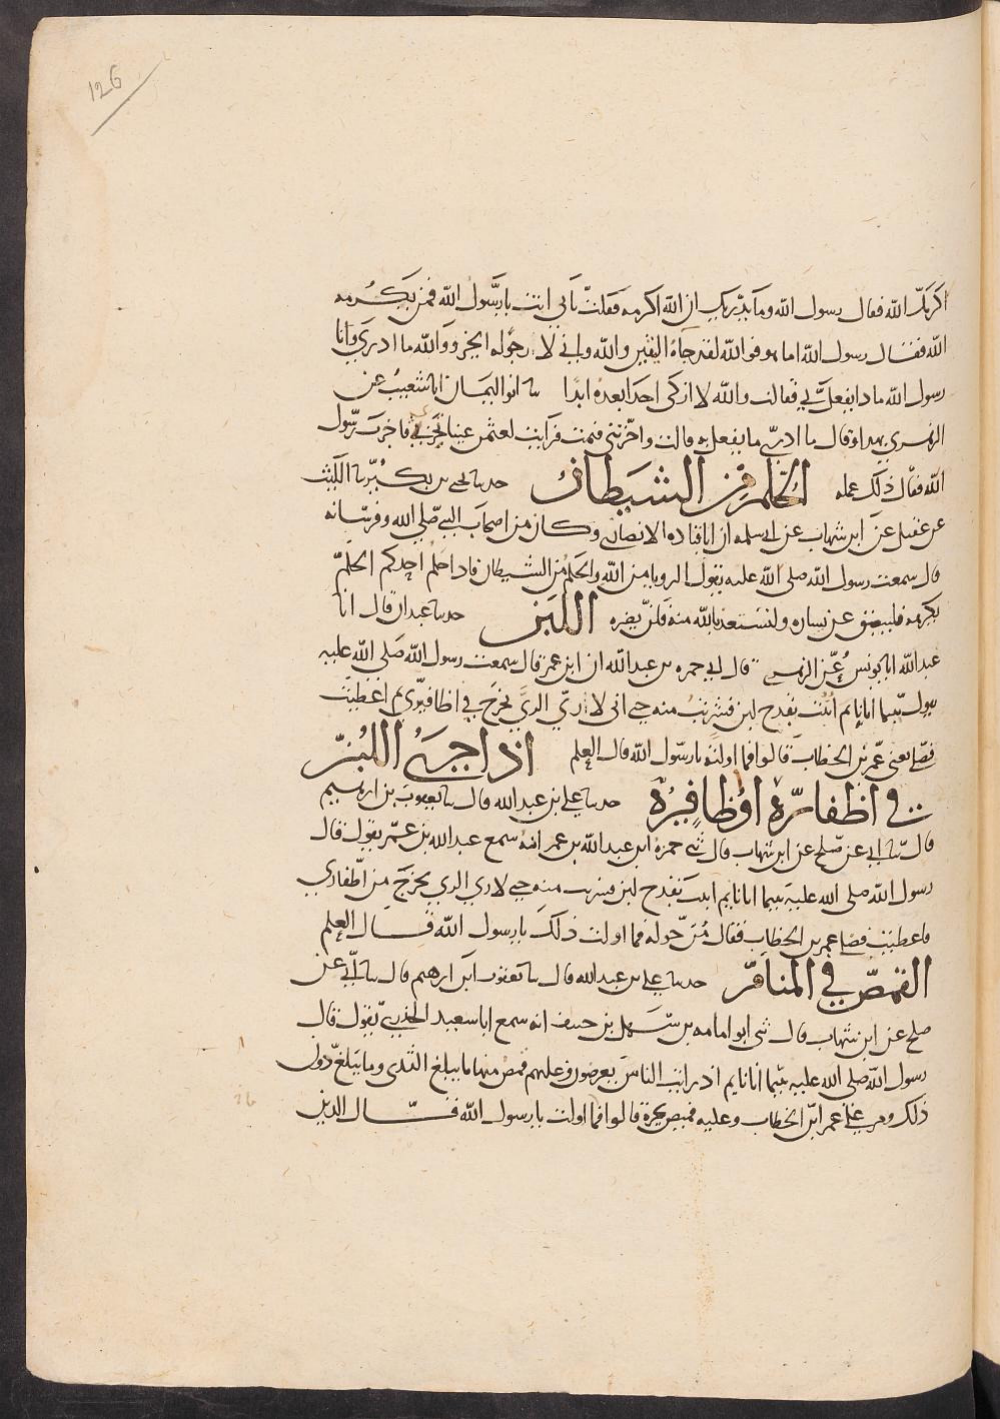 126
اكرمك الله فقال رسول الله وما يدريك ان الله اكرمه فقلت بابي انت يا رسول الله فمن يكرمه
الله فقال رسول الله اما هو فوالله لقد جاه اليقين والله واني لا رجوا له الخير ووالله ما ادري وانا
رسول الله ماذا يفعل بي فقالت والله لا ازكي احدا بعده ابدا ثنا ابو اليمان انا شعيب عن
الزهري بهذا وقال ما ادري ما يفعل به قالت واحزنني فنمت فرايت لعثمن عينا تجري فاخبرت رسول
الله فقال ذلك عمله الحلم من الشيطان حدثنا يحيى بن بكير ثنا الليث
عن عقيل عن ابن شهاب عن ابي سلمه ان ابا قتاده الانصاري وكان من اصحاب النبي صلى الله وفرسانه
قال سمعت رسول الله صلى الله عليه يقول الرويا من الله والحلم من الشيطان فاذا حلم احدكم الحلم
يكرهه فليبصق عن يساره وليستعذ بالله منه فلن يضره اللبن حدثنا عبدان قال انا
عبد الله انا يونس عن الزهري قال اني حمزه بن عبد الله ان ابن عمر قال سمعت رسول الله صلى الله عليه
يقول بينما انا نايم اتيت بقدح لبن فشربت منه حتى اني لا ري الري يخرج في اظافيري ثم اعطيت
فضلي يعني عمر بن الخطاب قالوا فما اولته يا رسول الله قال العلم اذا جرى اللبن
في اطرافه او اظافيره حدثنا علي بن عبد الله قال ثنا يعقوب بن ابرهيم
قال ثنا ابي عن صلح عن ابن شهاب قال ثني حمزة ابن عبد الله بن عمر انه سمع عبد الله بن عمر يقول قال
رسول الله صلى الله عليه بينما انا نايم اتيت بقدح لبن فشربت منه حتى لا ري الري يخرج من اظفاري
فاعطيت فضلي عمر بن الخطاب فقال من حوله فما اولت ذلك يا رسول الله قال العلم
القمص في المنام حدثنا علي بن عبد الله قال ثنا يعقوب ابن ابرهيم قال ثنا ابي عن
صلح عن ابن شهاب قال ثني ابو امامه بن سهل بن حنيف انه سمع ابا سعيد الخدري يقول قال
رسول الله صلى الله عليه بينما انا نايم اذ رايت الناس يعرضون وعليهم قمص منها ما يبلغ الثدي وما يبلغ دون
ذلك ومر علي عمر ابن الخطاب وعليه قميص يجره قالوا فما اولت يا رسول الله فقال الدين